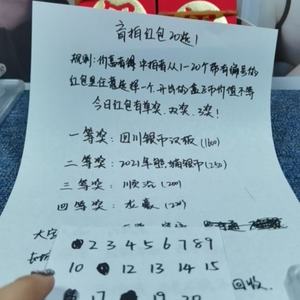 盲拍红包20选1
规则:你高有得 中拍者从1-20个带有编号的
红包里任意选择一个 开出的金币价值不等
今日红包有单奖、双奖、3奖!
一等奖:四川银币汉板(1100)
二等奖:2021年熊猫银币(250)
三等奖:顺治(200)
四等奖:龙毫(220)
2 3 4 5 6 7 8 9
10 12 13 14 15
17 19 20
回收